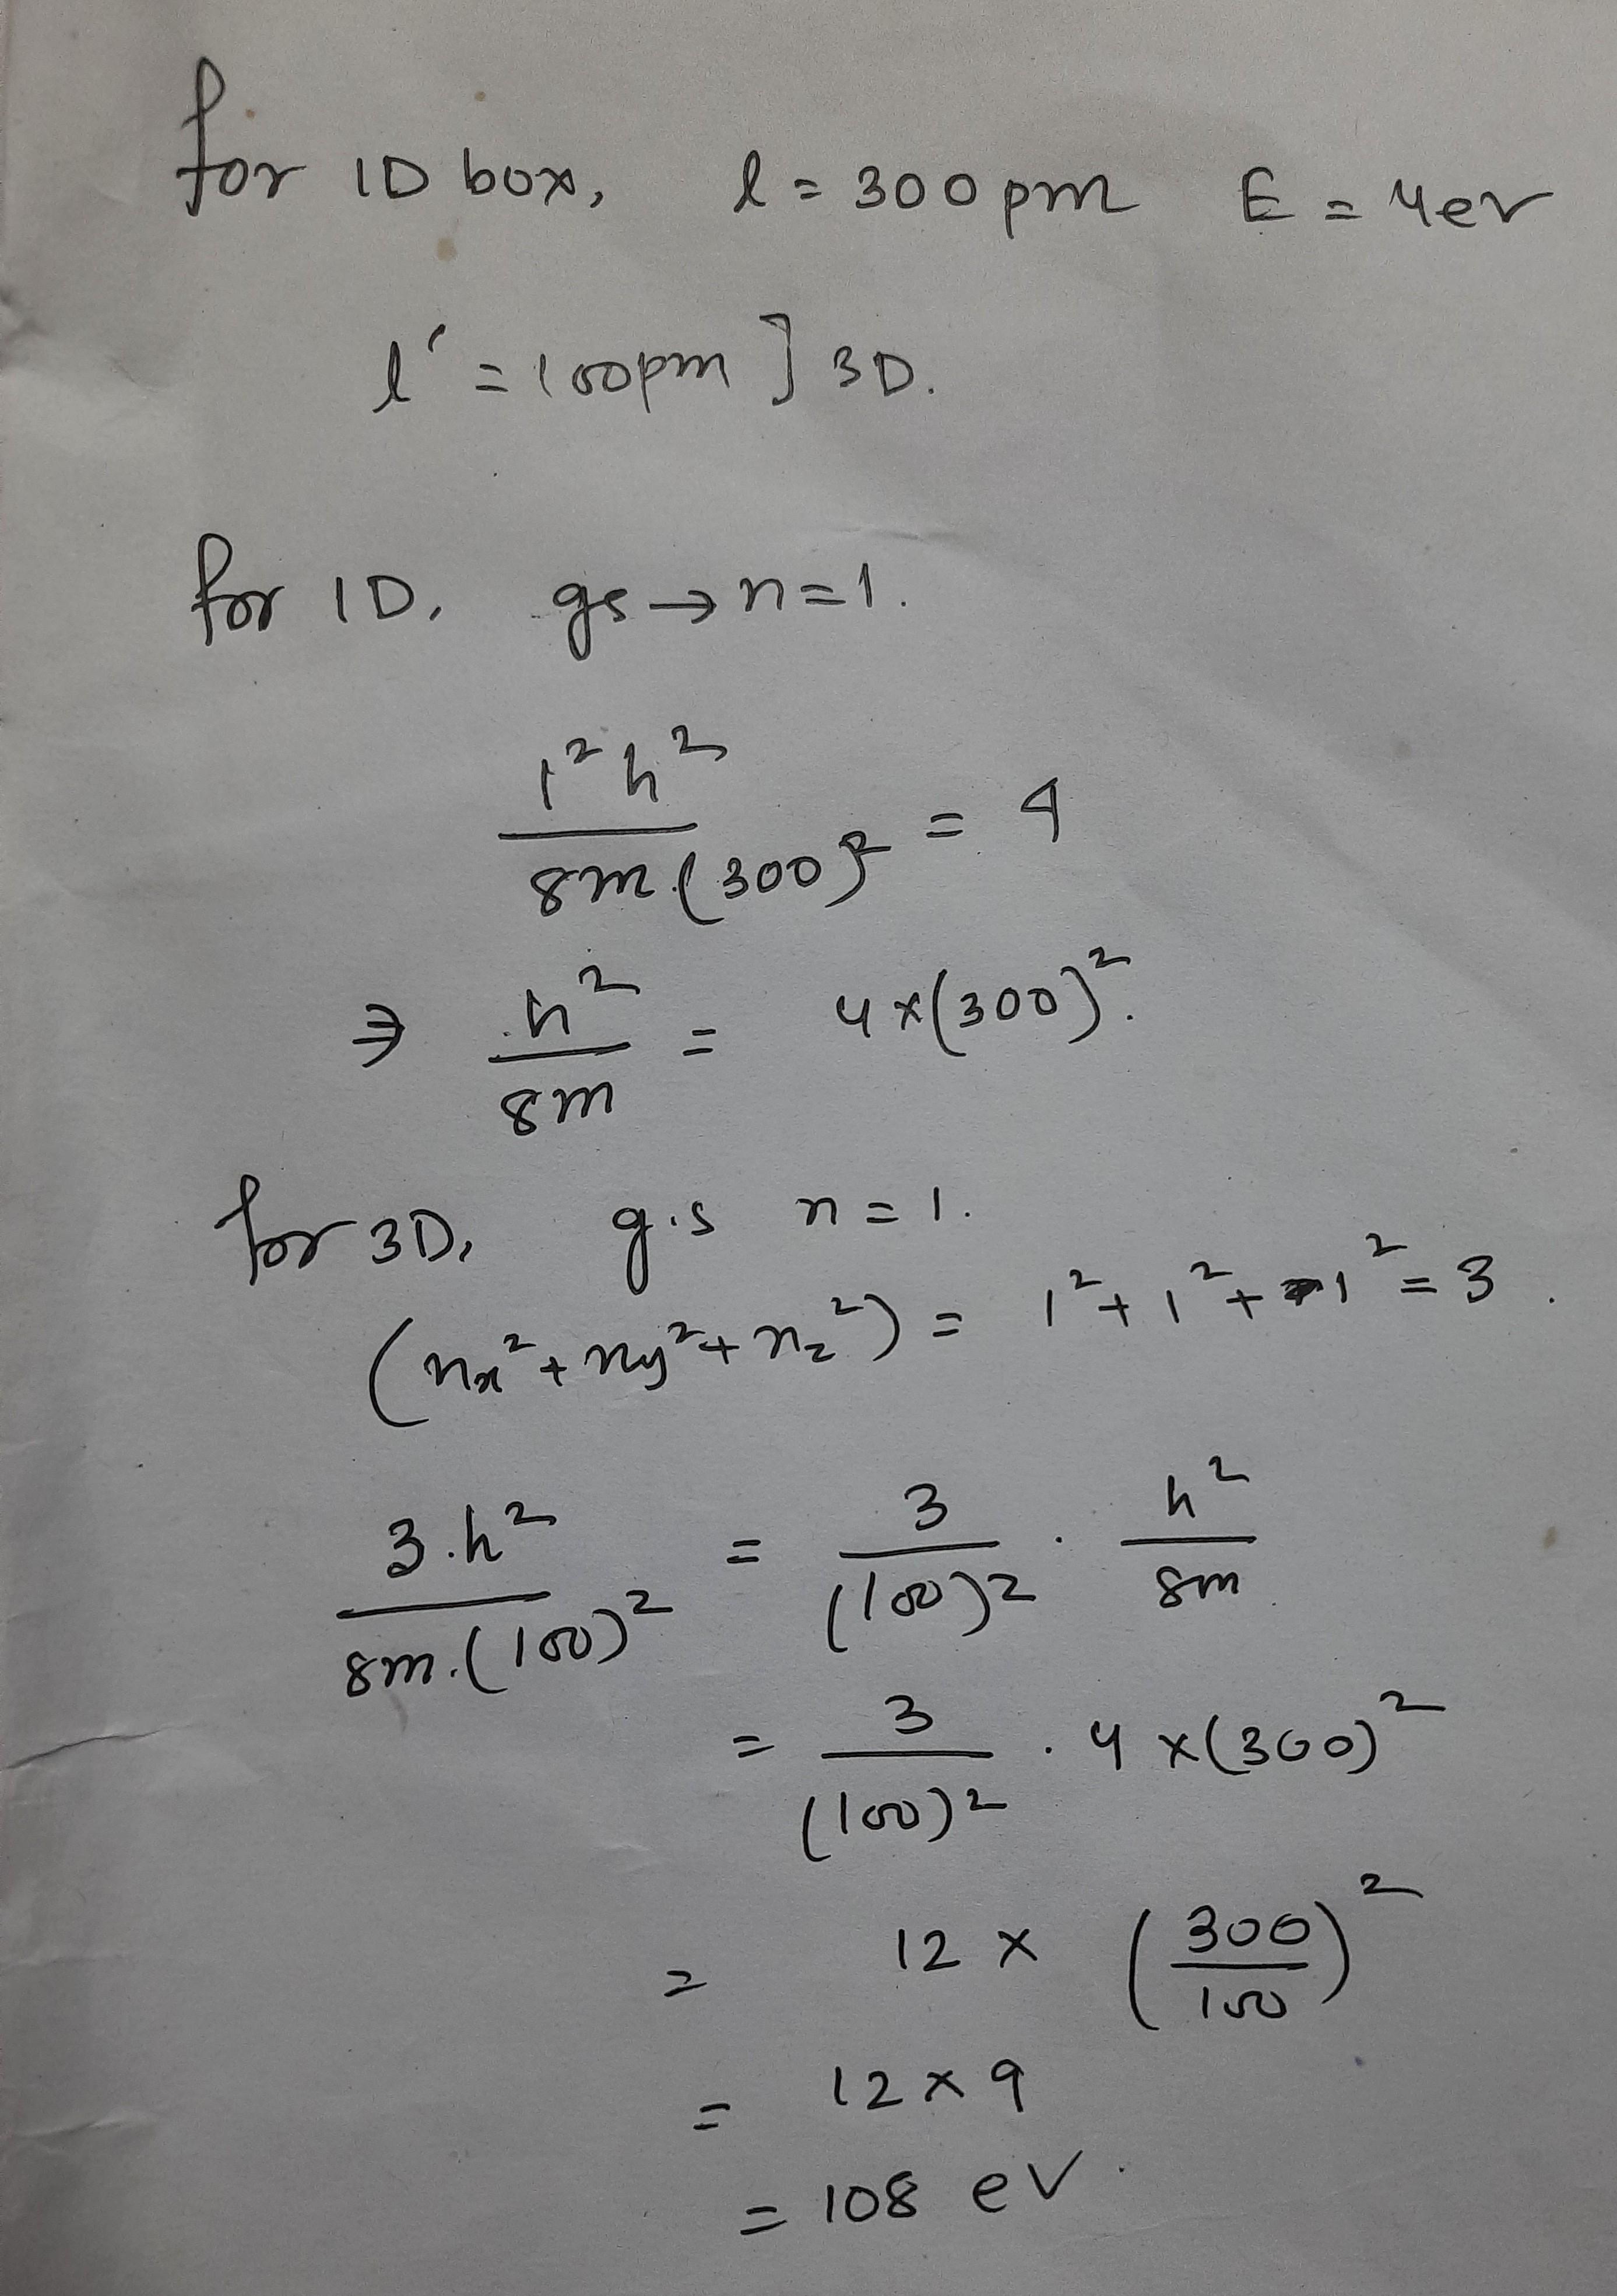 for 1D box, l = 300 pm E = 4ev
l' = 100pm ] 3D.
for 1D, gs → n=1.
1² h² / 8m (300)² = 4
⇒ h² / 8m = 4×(300)².
for 3D, g.s n = 1.
(nx² + ny² + nz²) = 1² + 1² + 1² = 3.
3.h² / 8m.(100)² = 3 / (100)² · h² / 8m.
= 3 / (100)² · 4 ×(300)²
= 12 × (300 / 100)²
= 12 × 9
= 108 eV.